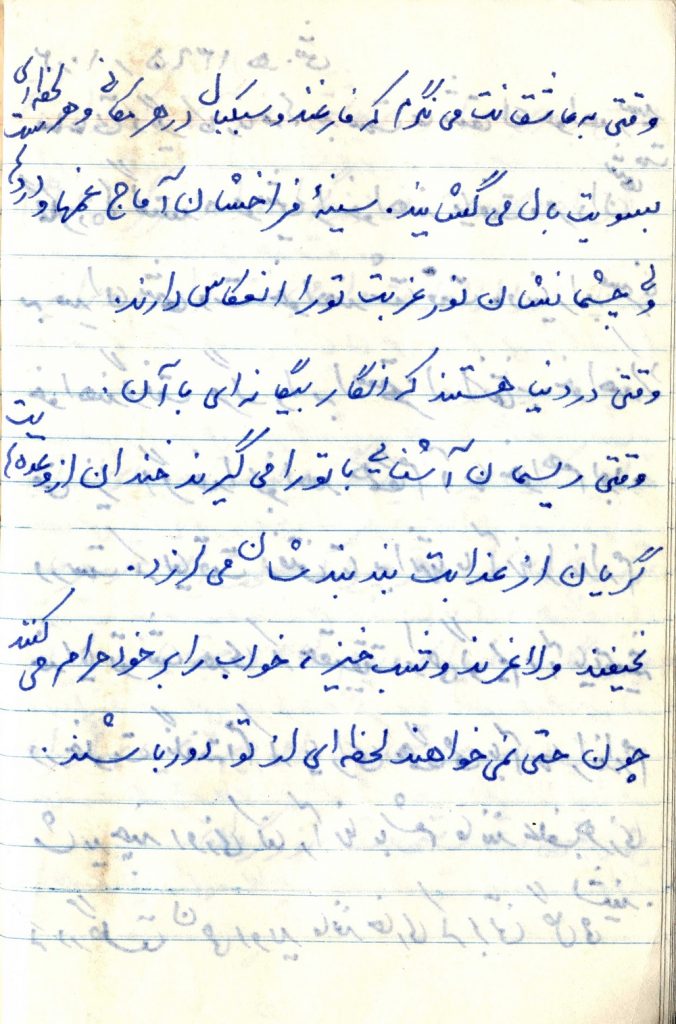 وقتی به عاشقانت می نگرم که فارغند و سبکبال در هر مکانی و هر لحظه ای
بسویت بال می گشایند. سینهٔ فراخشان آماج غمها و دردهاست
ولی چشمانشان نور غربت تو را انعکاس دارند.
وقتی در دنیا هستند که انگار بیگانه ای با آن.
وقتی ریسمان آشنایی با تو را می گیرند خندان از وعده هایت
گریان از عذابت بند بندشان می لرزد.
نحیفند و لاغرند و شب خیز، خواب را بر خود حرام می کنند
چون حتی نمی خواهند لحظه ای از تو دور باشند.